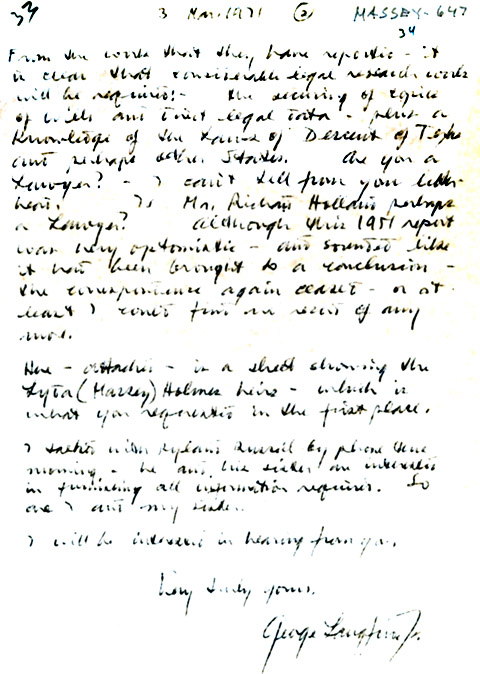 34 3 Mar. 1971 (2) MASSEY-647
34
From the work that they have reported - it
is clear that considerable legal research work
will be required:- the securing of copies
of wills and tract legal data - plus a
knowledge of the Laws of Descent of Texas
and perhaps other States. Are you a
Lawyer? - I can't tell from your letter-
head. Is Mr. Richard Holland perhaps
a Lawyer? Although this 1951 report
was very optomistic - and sounded like
it had been brought to a conclusion -
the correspondence again ceased - or at
least I can't find a record of any
more.
Here - attached - is a sheet showing the
Lyda (Massey) Holmes heirs - which is
what you requested in the first place.
I talked with Ryland Russell by phone this
morning - he and his sister are interested
in furnishing all information required. So
are I and my sister.
I will be interested in hearing from you.
Very truly yours,
George